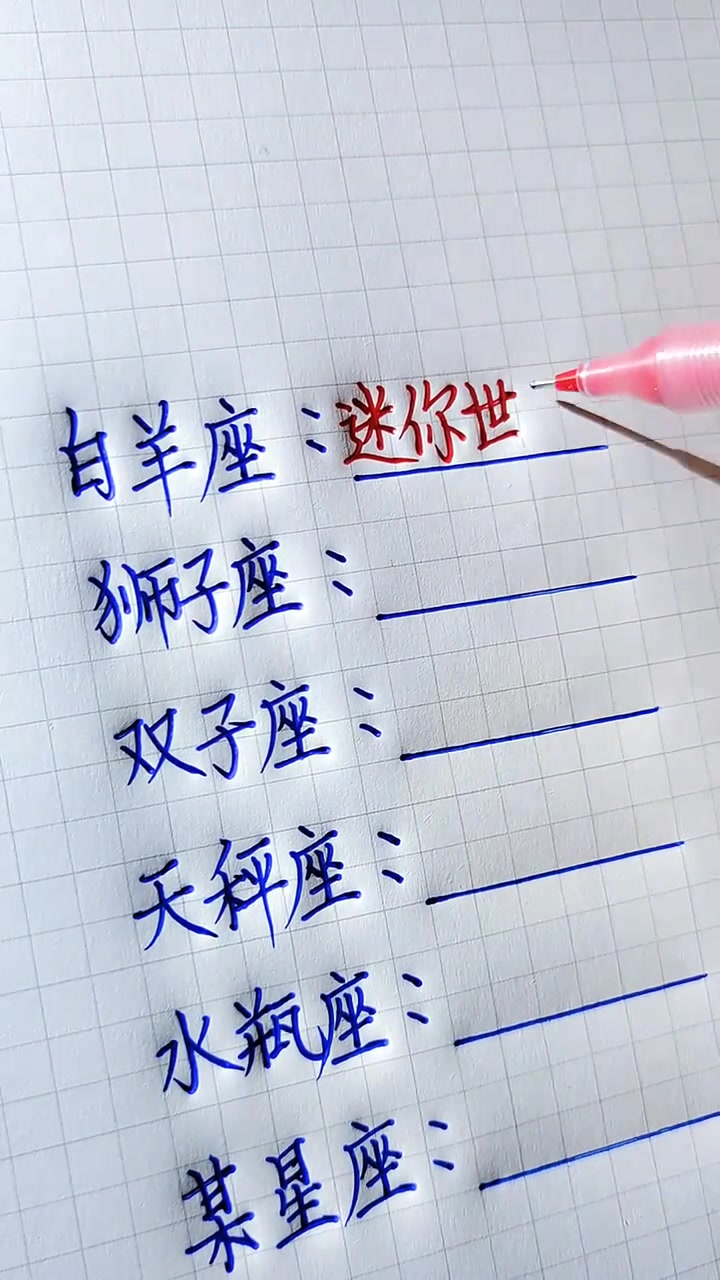 白羊座：迷你世
狮子座：
双子座：
天秤座：
水瓶座：
某星座：